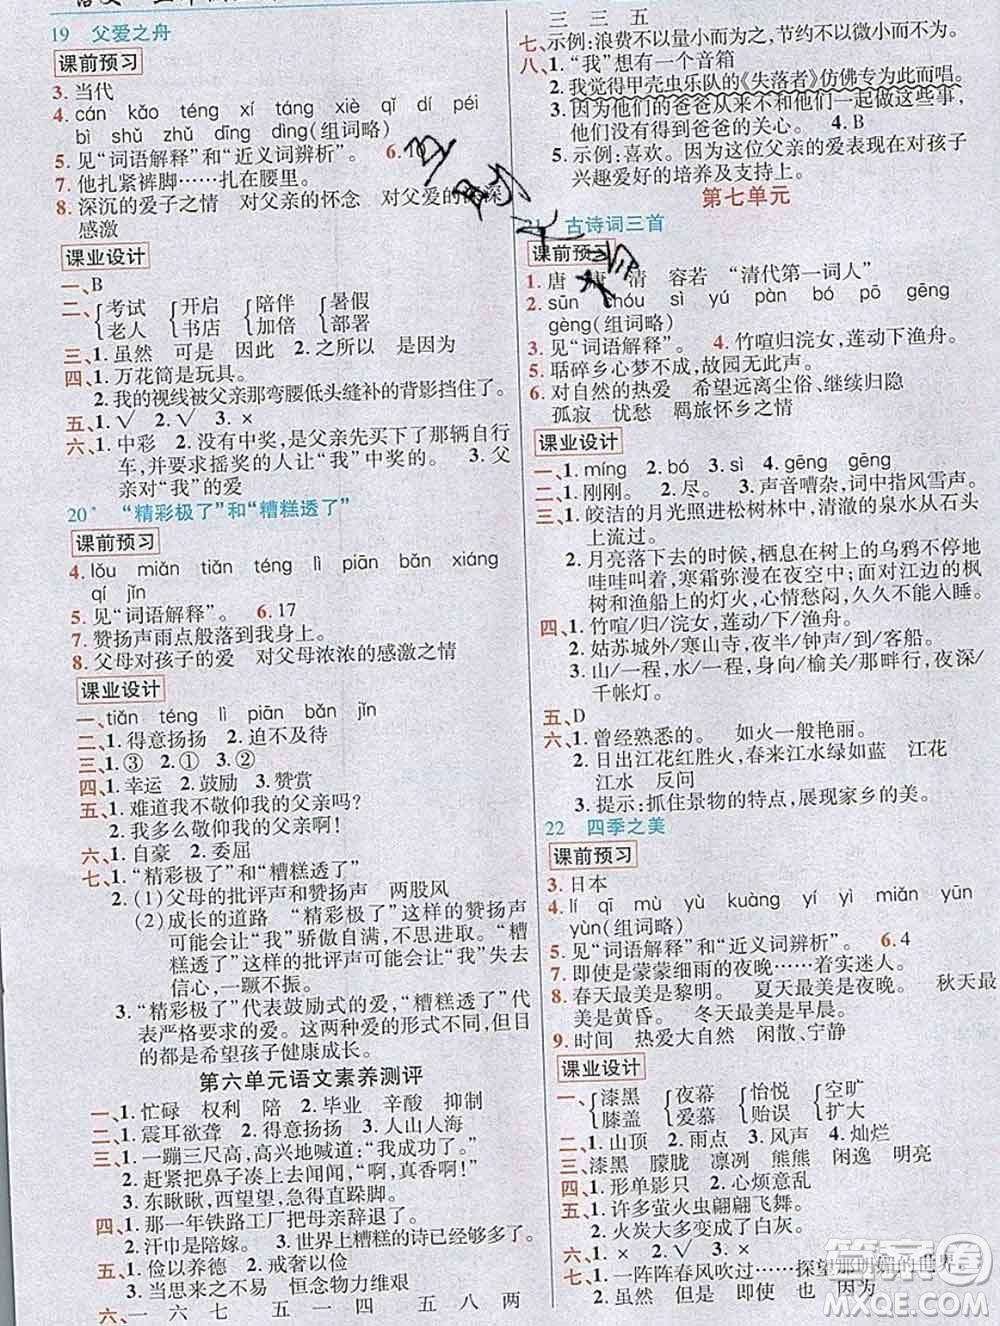 19 父爱之舟
课前预习
3. 当代
4. cán kǎo téng xí táng xiè qǐ dí péi
bì shǔ zhǔ dīng dìng(组词略)
5. 见“词语解释”和“近义词辨析”。 6.
7. 他扎紧裤脚……扎在腰里。
8. 深沉的爱子之情 对父亲的怀念 对父爱的 深
感激
课业设计
一、B
二、{考试 老人 {开启 书店 {陪伴 加倍 {暑假 部署
三、1. 虽然 可是 因此 2. 之所以 是因为
四、1. 万花筒是玩具。
2. 我的视线被父亲那弯腰低头缝补的背影挡住了。
五、1. √ 2. √ 3. ×
六、1. 中彩 2. 没有中奖,是父亲先买下了那辆自行
车,并要求摇奖的人让“我”中奖的。 3. 父
亲对“我”的爱
20* “精彩极了”和“糟糕透了”
课前预习
4. lǒu miǎn tiǎn téng lì piān bǎn xiáng
qí jǐn
5. 见“词语解释”。 6. 17
7. 赞扬声雨点般落到我身上。
8. 父母对孩子的爱 对父母浓浓的感激之情
课业设计
一、tiǎn téng lì piān bǎn jǐn
二、1. 得意扬扬 2. 迫不及待
三、1. ③ 2. ① 3. ②
四、1. 幸运 2. 鼓励 3. 赞赏
五、1. 难道我不敬仰我的父亲吗?
2. 我多么敬仰我的父亲啊!
六、1. 自豪 2. 委屈
七、1. “精彩极了”和“糟糕透了”
2. (1)父母的批评声和赞扬声 两股风
(2)成长的道路 “精彩极了”这样的赞扬声
可能会让“我”骄傲自满,不求进取。“糟糕
透了”这样的批评声可能会让“我”失去
信心,一蹶不振。
3. “精彩极了”代表鼓励式的爱,“糟糕透了”代
表严格要求的爱。这两种爱的形式不同,但目
的都是希望孩子健康成长。
第六单元语文素养测评
一、1. 忙碌 权利 陪 2. 毕业 辛酸 抑制
二、1. 震耳欲聋 2. 得意扬扬 3. 人山人海
三、1. 一蹦三尺高,高兴地喊道:“我成功了。”
2. 赶紧把鼻子凑上去闻闻,“啊,真香啊!”
3. 东瞅瞅,西望望,急得直跺脚。
四、1. 那一年铁路工厂把母亲辞退了。
2. 汗巾是陪嫁。 3. 世界上糟糕的诗已经够多了。
五、1. 俭以养德 成由勤俭败由奢
2. 当思来之不易 恒念物力维艰
六、一 六 七 五 一 四 五 八 两
三 三 五
七、示例:浪费不以量小而为之,节约不以微小而不为。
八、1. “我”想有一个音箱
2. 我觉得甲壳虫乐队的《失落者》仿佛专为此而唱。
3. 因为他们的爸爸从来不和他们一起做这些事,
他们没有得到爸爸的关心。 4. B
5. 示例:喜欢。因为这位父亲的爱表现在对孩子
兴趣爱好的培养及支持上。
第七单元
古诗词三首
课前预习
1. 唐 清 容若 “清代第一词人”
2. sūn sì yú pàn bó pō gēng
gèng(组词略)
3. 见“词语解释”。 4. 竹喧归浣女,莲动下渔舟。
5. 聒碎乡心梦不成,故园无此声。
6. 对自然的热爱 希望远离尘俗、继续归隐
孤寂 忧愁 羁旅怀乡之情
课业设计
一、1. míng 2. bó 3. sì 4. gēng gēng
二、1. 刚刚。 2. 尽。 3. 声音嘈杂,词中指风雪声。
三、1. 皎洁的月光照进松树林中,清澈的泉水从石头
上流过。
2. 月亮落下去的时候,栖息在树上的乌鸦不停地
哇哇叫着,寒霜弥漫在夜空中,面对江边的枫
树和渔船上的灯火,心情愁闷,久久不能入睡。
四、1. 竹喧/归/浣女,莲动/下/渔舟。
2. 姑苏城外/寒山寺,夜半/钟声/到/客船。
3. 山/一程,水/一程,身向/榆关/那畔行,夜深/
千帐灯。
五、D
六、1. 曾经熟悉的。 如火一般艳丽。
2. 日出江花红胜火,春来江水绿如蓝 江花
江水 反问
3. 提示:抓住景物的特点,展现家乡的美。
22 四季之美
课前预习
3. 日本
4. lí qī mù yù kuàng yí yì miǎn yūn
yùn(组词略)
5. 见“词语解释”和“近义词辨析”。 6. 4
7. 即使是蒙蒙细雨的夜晚……着实迷人。
8. 春天最美是黎明。 夏天最美是夜晚。 秋天最
美是黄昏。 冬天最美是早晨。
9. 时间 热爱大自然 闲散、宁静
课业设计
一、{漆黑 膝盖 {夜幕 爱慕 {怡悦 贻误 {空旷 扩大
二、1. 山顶 2. 雨点 3. 风声 4. 灿烂
三、漆黑 朦胧 凛冽 熊熊 闲逸 明亮
四、1. 形单影只 2. 心烦意乱
五、1. 许多萤火虫翩翩飞舞。
2. 火炭大多变成了白灰。
六、1. × 2. √ 3. × 4. ×
七、1. 一阵阵春风吹过……探望 那明媚的世界。
2. 虽然 但是 即使 也 因为
答案圈
MXQE.COM